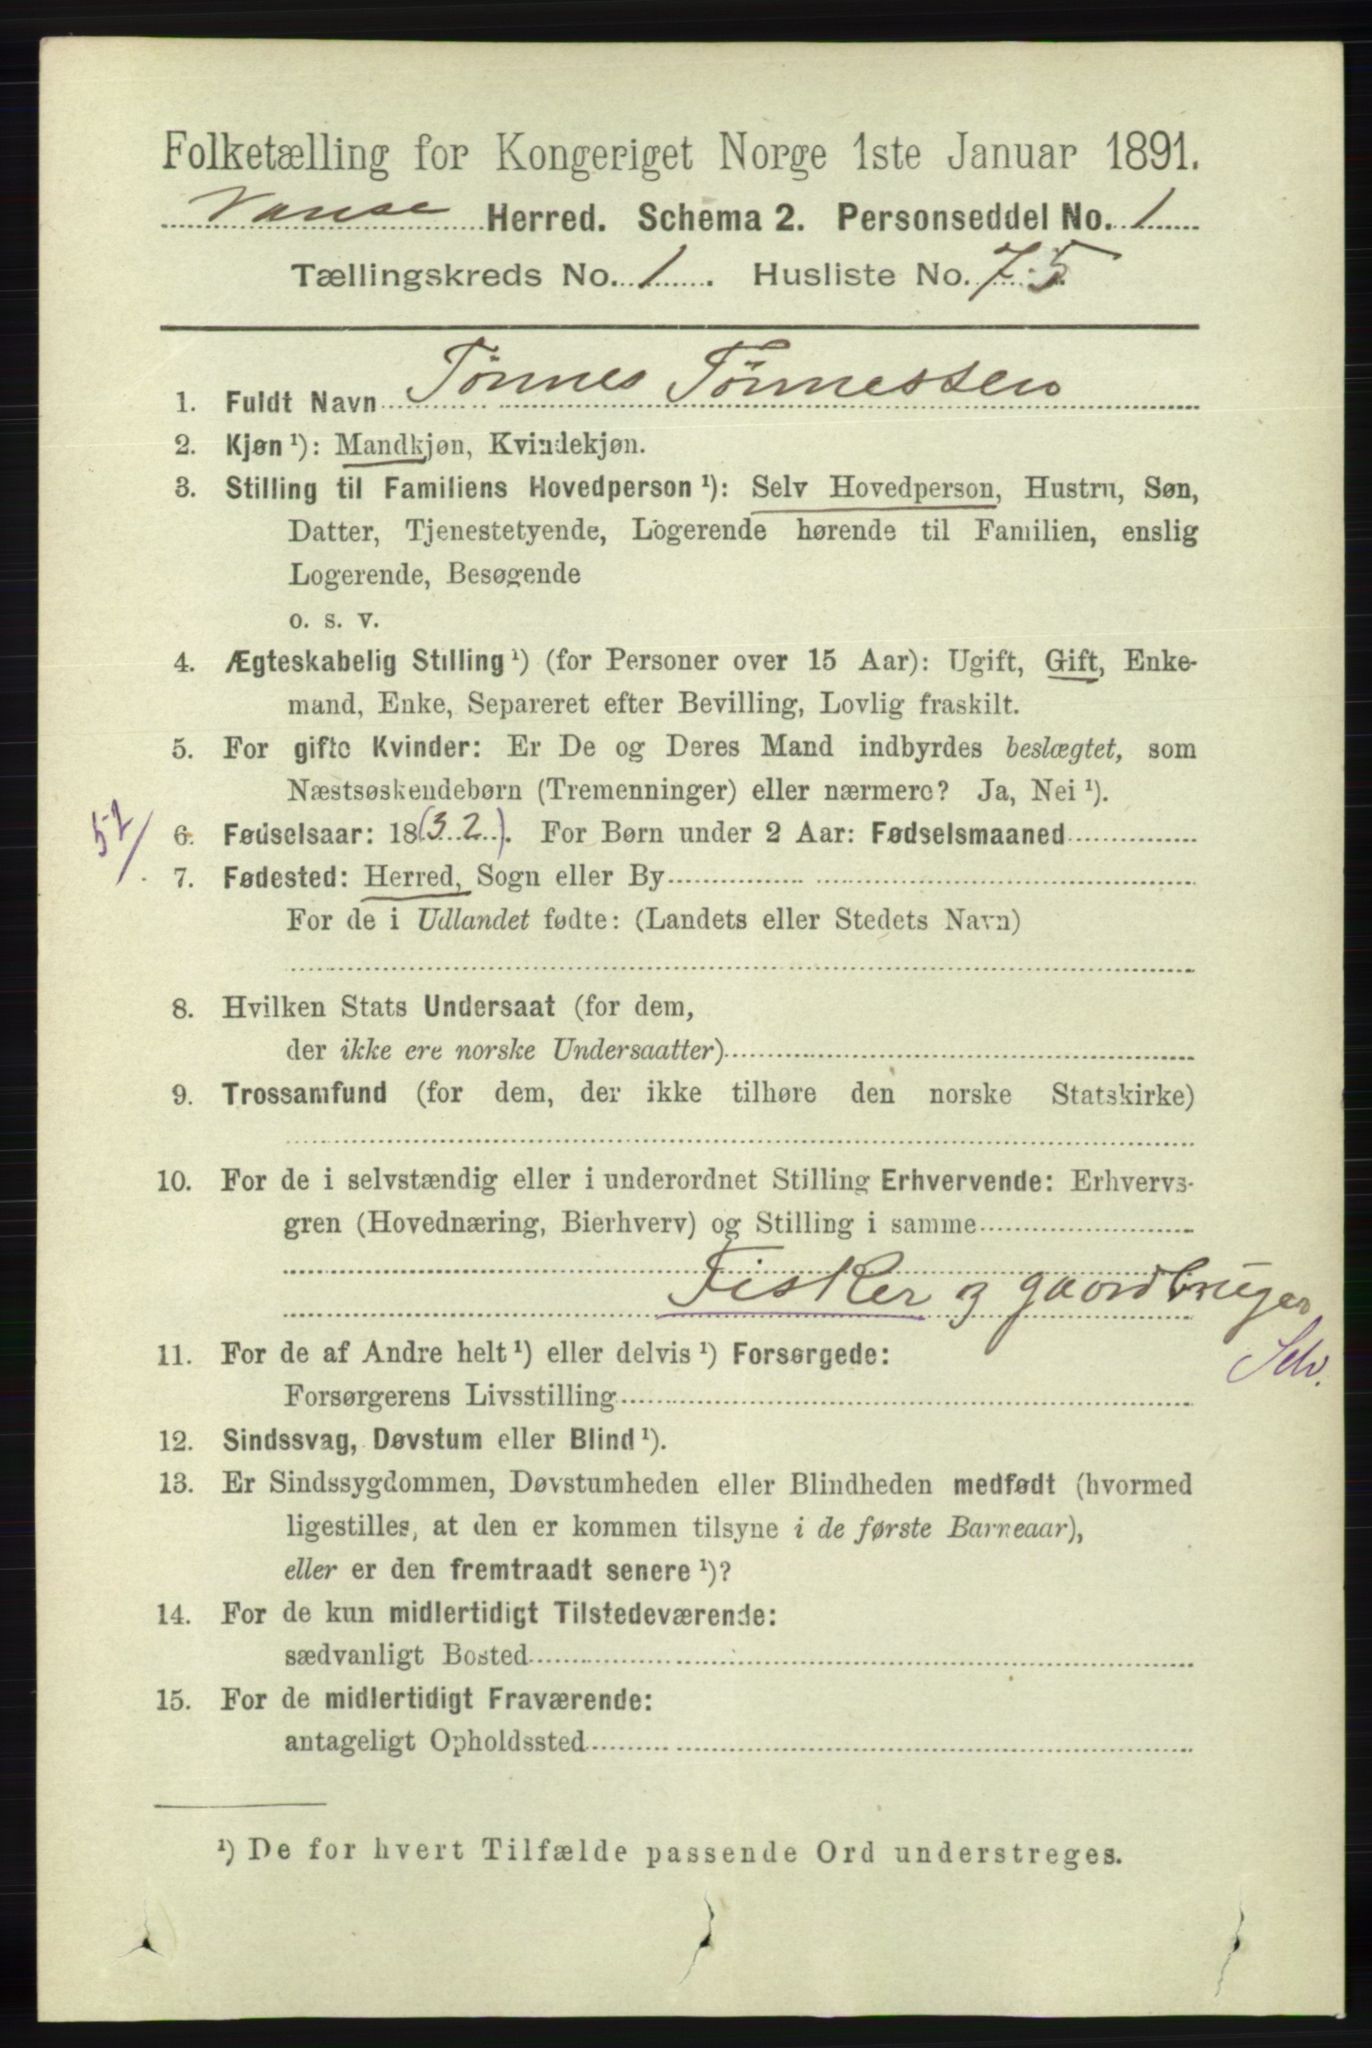 Folketælling for Kongeriget Norge 1ste Januar 1891.
Vanse Herred. Schema 2. Personseddel No. 1
Tællingskreds No. 1. Husliste No. 75
1. Fuldt Navn Tønnes Tønnessen
2. Kjøn ¹): Mandkjøn, Kvindekjøn.
3. Stilling til Familiens Hovedperson ¹): Selv Hovedperson, Hustru, Søn,
Datter, Tjenestetyende, Logerende hørende til Familien, enslig
Logerende, Besøgende
o. s. v.
4. Ægteskabelig Stilling ¹) (for Personer over 15 Aar): Ugift, Gift, Enke-
mand, Enke, Separeret efter Bevilling, Lovlig fraskilt.
5. For gifte Kvinder: Er De og Deres Mand indbyrdes beslægtet, som
Næstsøskendebørn (Tremenninger) eller nærmere? Ja, Nei ¹).
6. Fødselsaar: 18(32). For Børn under 2 Aar: Fødselsmaaned
7. Fødested: Herred, Sogn eller By
For de i Udlandet fødte: (Landets eller Stedets Navn)
8. Hvilken Stats Undersaat (for dem,
der ikke ere norske Undersaatter)
9. Trossamfund (for dem, der ikke tilhøre den norske Statskirke)
10. For de i selvstændig eller i underordnet Stilling Erhvervende: Erhvervs-
gren (Hovednæring, Bierhverv) og Stilling i samme
Fisker og gaardbruger
Selv.
11. For de af Andre helt ¹) eller delvis ¹) Forsørgede:
Forsørgerens Livsstilling
12. Sindssvag, Døvstum eller Blind ¹).
13. Er Sindssygdommen, Døvstumheden eller Blindheden medfødt (hvormed
ligestilles, at den er kommen tilsyne i de første Barneaar),
eller er den fremtraadt senere ¹)?
14. For de kun midlertidigt Tilstedeværende:
sædvanligt Bosted
15. For de midlertidigt Fraværende:
antageligt Opholdssted
¹) De for hvert Tilfælde passende Ord understreges.